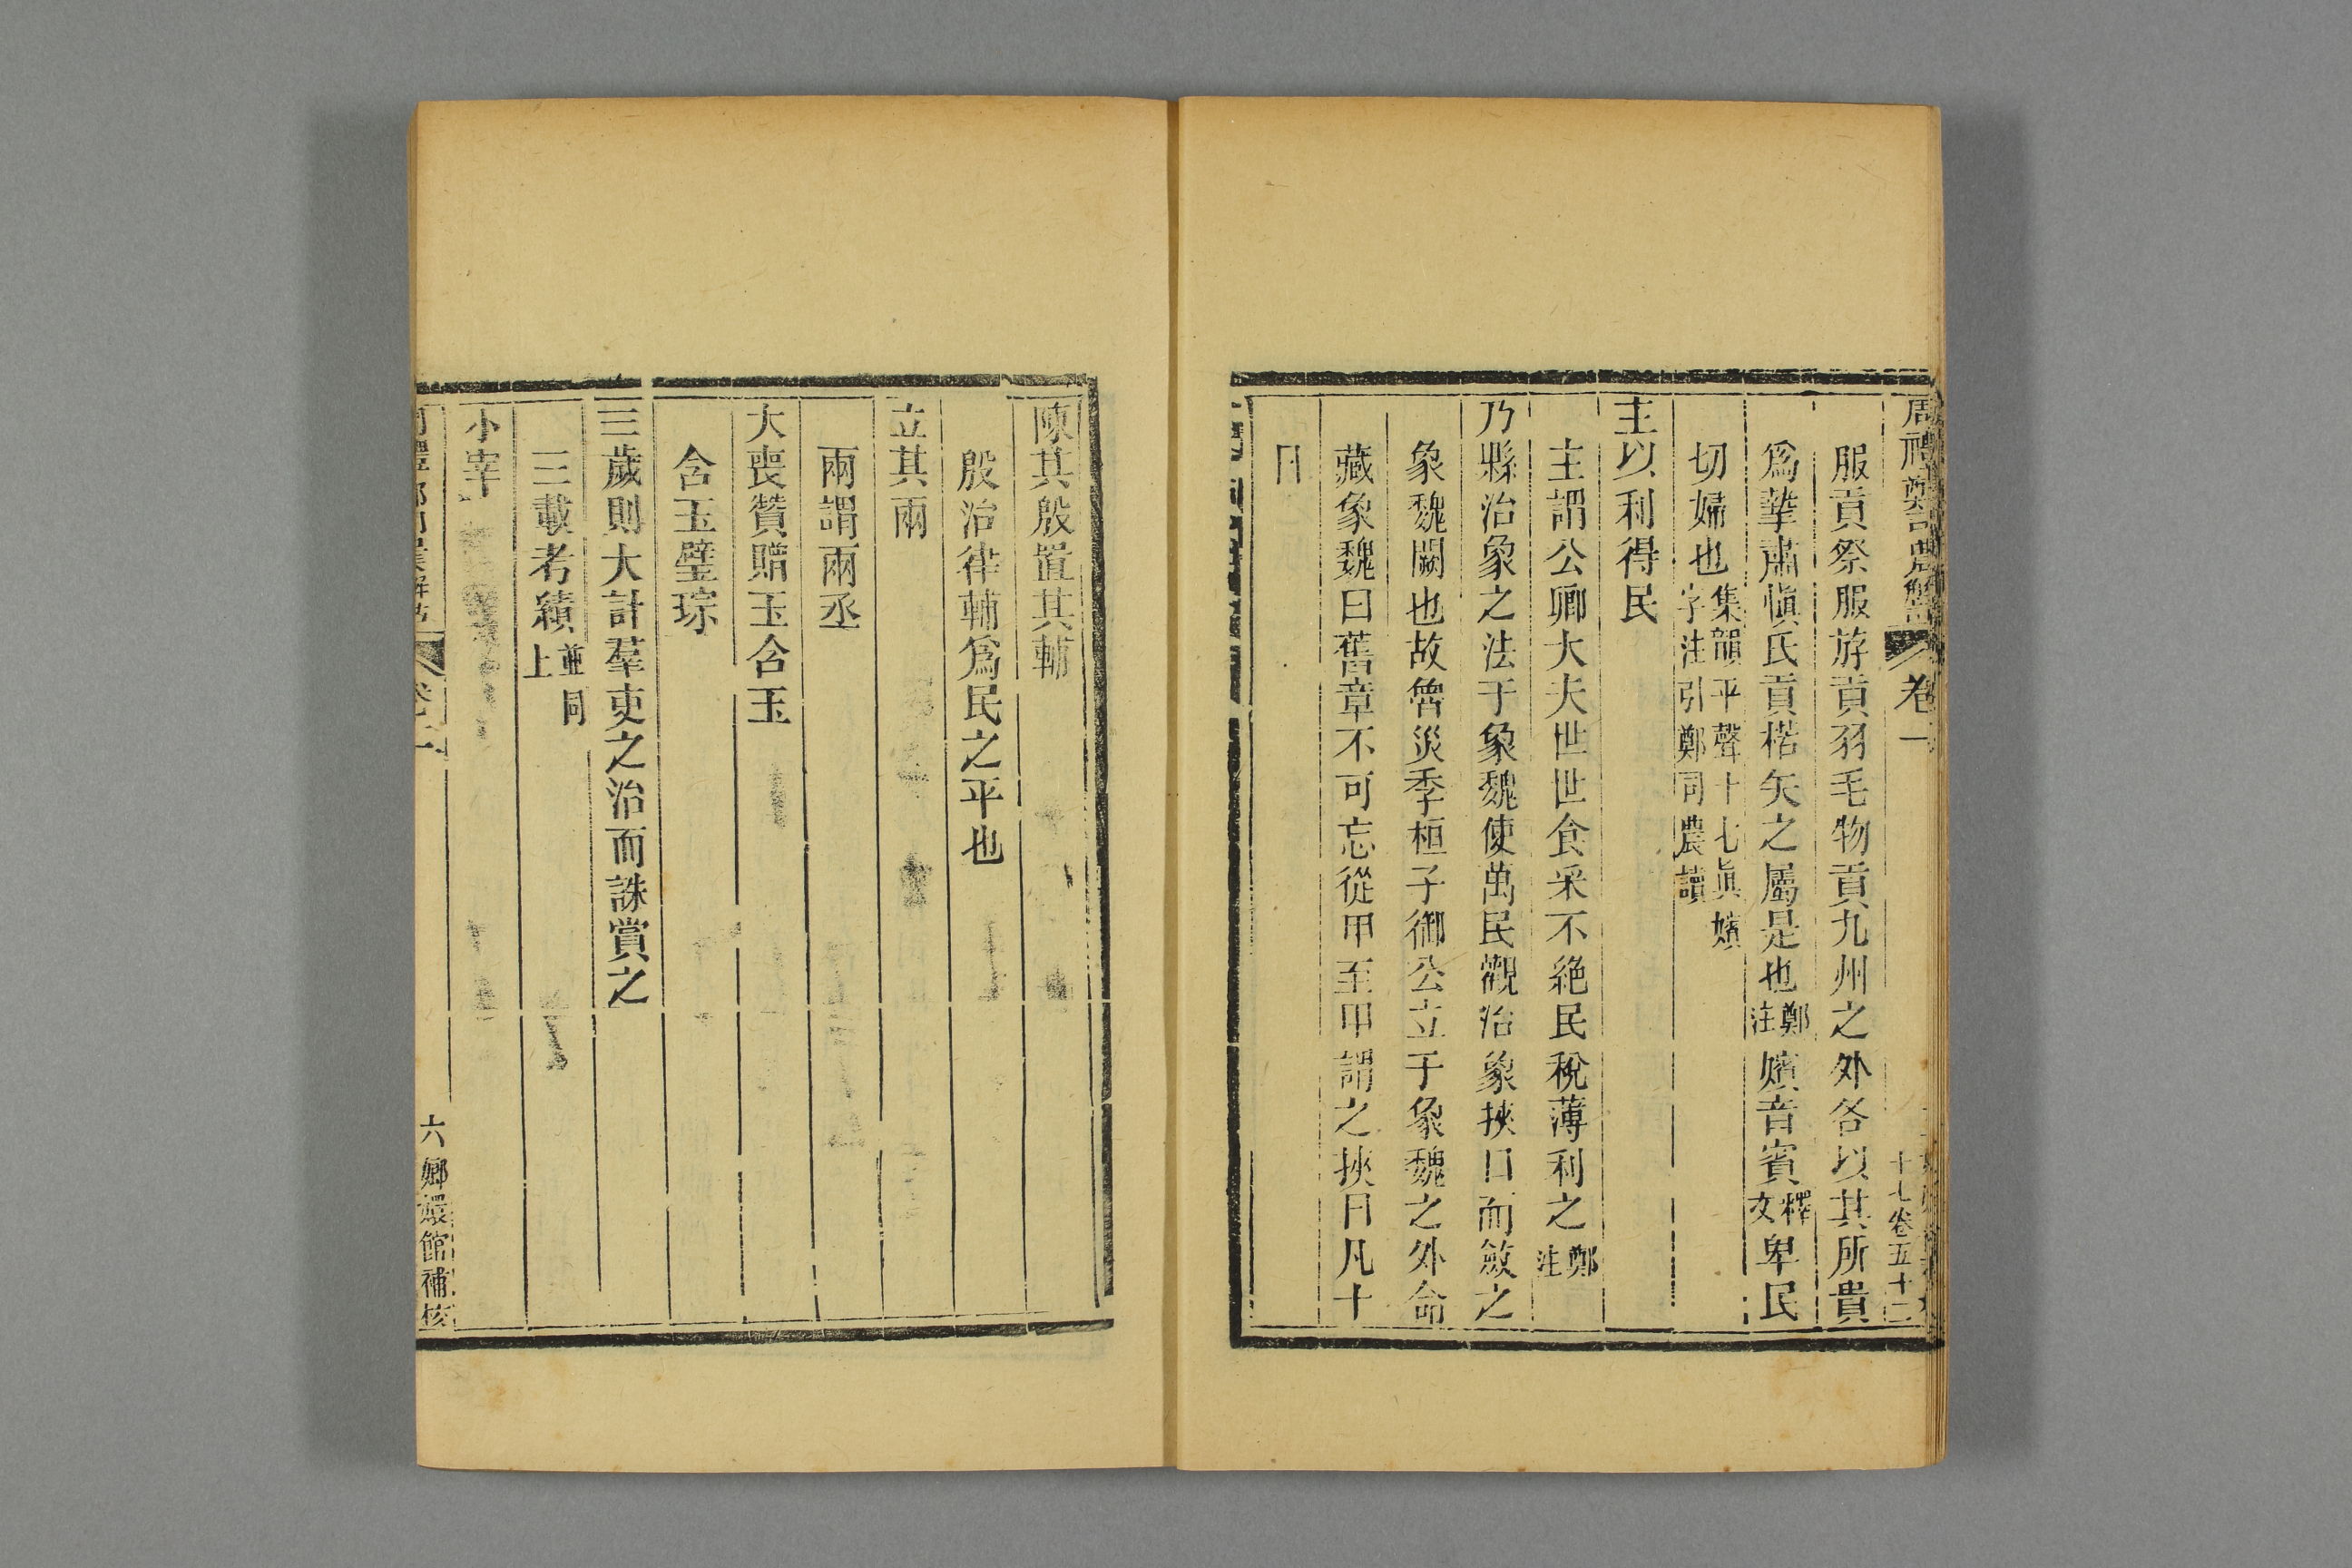 周禮鄭司農解詁 卷一 十七卷五十二
服貢祭服斿貢羽毛物貢九州之外各以其所貴
爲摯肅愼氏貢楛矢之屬是也鄭注嬪音賓釋文卑民
切婦也集韻平聲十七眞嬪字注引鄭司農讀
主以利得民
主謂公卿大夫世世食采不絕民稅薄利之鄭注
乃縣治象之法于象魏使萬民觀治象挾日而斂之
象魏闕也故魯災季桓子御公立于象魏之外命
藏象魏曰舊章不可忘從甲至甲謂之挾日凡十
日
陳其殷置其輔
殷治律輔爲民之平也
立其兩
兩謂兩丞
大喪贊贈玉含玉
含玉璧琮
三歲則大計羣吏之治而誅賞之
三載考績並同上
小宰
周禮鄭司農解詁 卷一 六 嫏嬛館補校